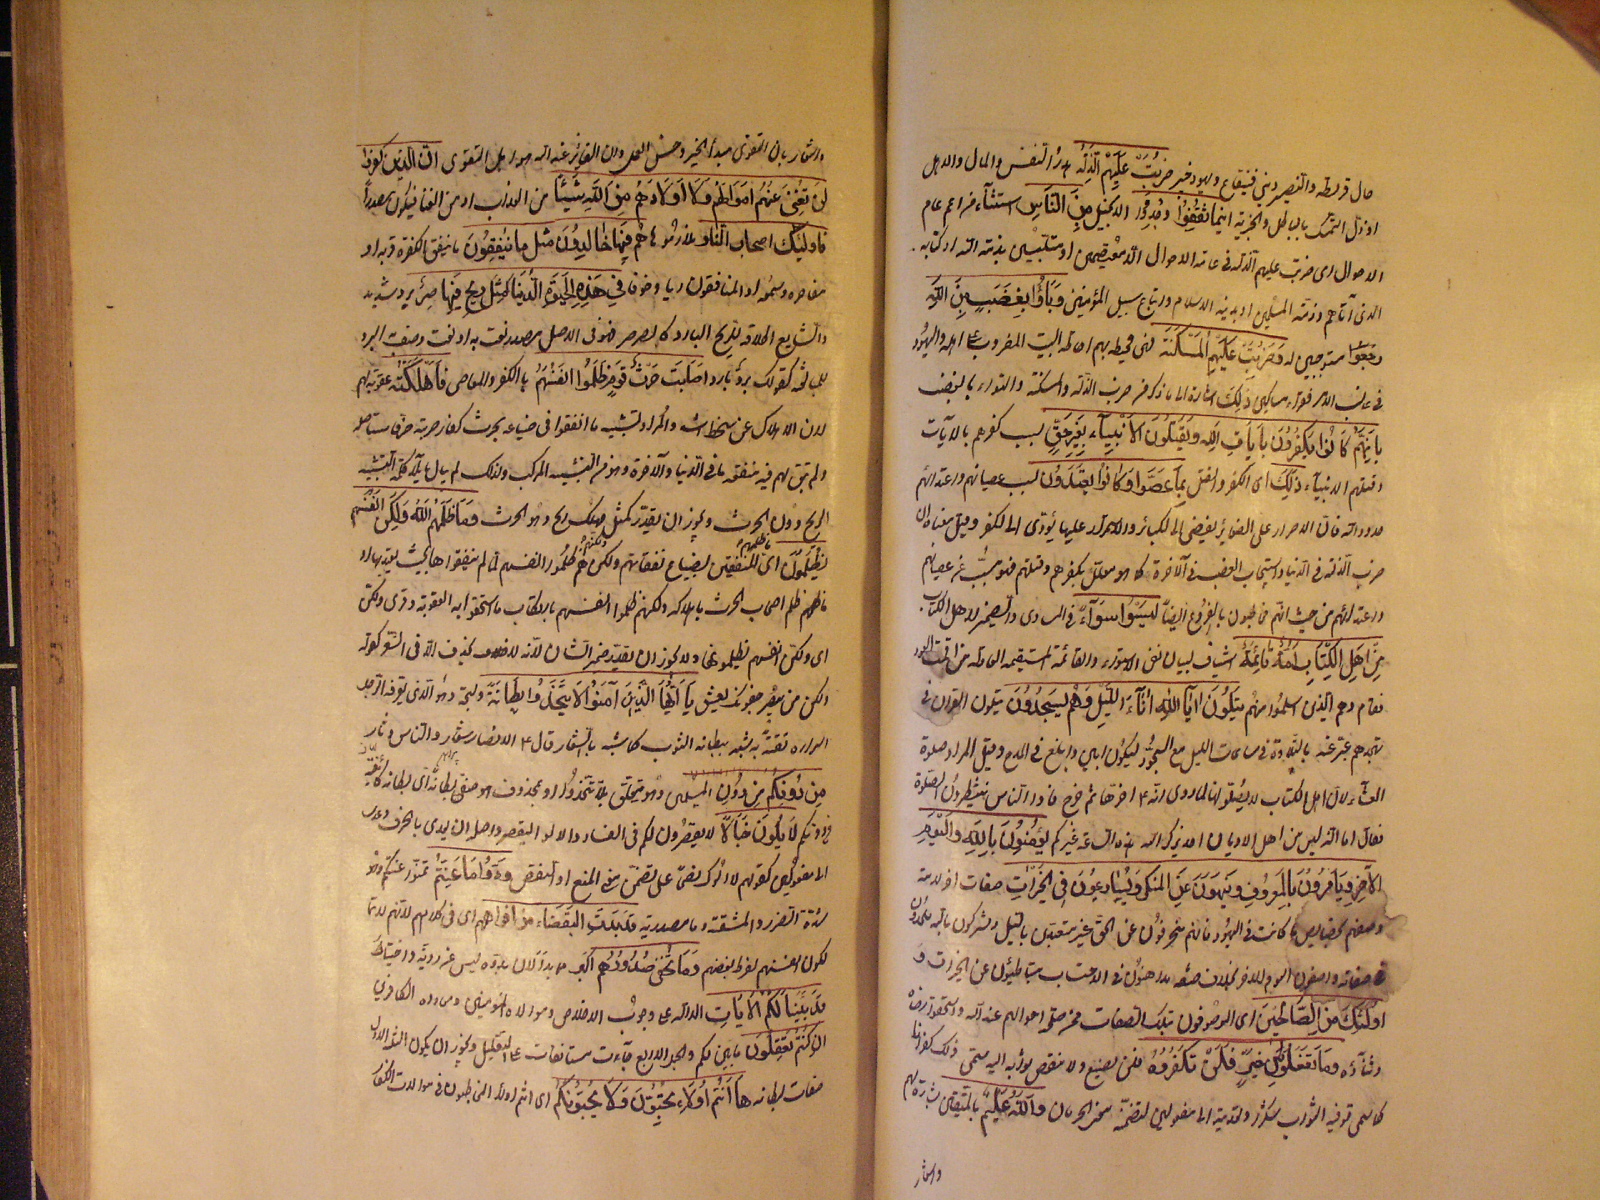 حال قريظة والنضير وبني قينقاع ويهود خيبر ضُرِبَتْ عَلَيْهِمُ الذِّلَّةُ هدر النفس والمال والاهل
او ذل التمسك بالباطل والجزية اينما ثقفوا وجدوا الا بحبل من الناس استثناء من اعم عام
الاحوال اى ضربت عليهم الذلة في عامة الاحوال الا معتصمين او متلبسين بذمة الله او كتابه
الذى آتاهم وذمة المسلمين او بدين الاسلام واتباع سبيل المؤمنين وَبَاؤُا بِغَضَبٍ مِنَ اللَّهِ
رجعوا مستوجبين له وَضُرِبَتْ عَلَيْهِمُ الْمَسْكَنَةُ فهي محيطة بهم احاطة البيت المضروب على اهله واليهود
في غالب الامر فقراء مساكين ذلك اشارة الى ما ذكر من ضرب الذلة والمسكنة والبواء بالغضب
بِأَنَّهُمْ كَانُوا يَكْفُرُونَ بِآيَاتِ اللَّهِ وَيَقْتُلُونَ الْأَنْبِيَاءَ بِغَيْرِ حَقٍّ بسبب كفرهم بالآيات
وقتلهم الانبياء ذلك اى الكفر والقتل بِمَا عَصَوْا وَكَانُوا يَعْتَدُونَ بسبب عصيانهم واعتدائهم
حدود الله فان الاصرار على الصغائر يفضي الى الكبائر والاستمرار عليها يؤدى الى الكفر وقيل معناه ان
ضرب الذلة في الدنيا واستيجاب الغضب في الآخرة كما هو معلل بكفرهم وقتلهم فهو مسبب عن عصيانهم
واعتدائهم من حيث انهم مخاطبون بالفروع ايضا لَيْسُوا سَوَاءً في المساوى والضمير لاهل الكتاب
مِنْ أَهْلِ الْكِتَابِ أُمَّةٌ قَائِمَةٌ استيناف لبيان نفى الاستواء والقائمة المستقيمة العادلة من اقمت العود
فقام وهم الذين اسلموا منهم يَتْلُونَ آيَاتِ اللَّهِ آنَاءَ اللَّيْلِ وَهُمْ يَسْجُدُونَ يتلون القرآن في
تهجدهم عبر عنه بالتلاوة في ساعات الليل مع السجود ليكون ابين وابلغ في المدح وقيل المراد صلوة
العشاء لان اهل الكتاب لا يصلونها لما روى انه ء اخرها ثم خرج فاذا الناس ينتظرون الصلوة
فقال اما انه ليس من اهل الاديان احد يذكر الله هذه الساعة غيركم يُؤْمِنُونَ بِاللَّهِ وَالْيَوْمِ
الْآخِرِ وَيَأْمُرُونَ بِالْمَعْرُوفِ وَيَنْهَوْنَ عَنِ الْمُنْكَرِ وَيُسَارِعُونَ فِي الْخَيْرَاتِ صفات اخر لامة
وصفهم بخصايص ما كانت في اليهود فانهم منحرفون عن الحق غير متعبدين بالليل مشركون بالله ملحدون
صفاته واصفون اليوم الآخر بخلاف صفته مداهنون في الاحتساب متباطئون عن الخيرات و
أُولَئِكَ مِنَ الصَّالِحِينَ اى الموصوفون بتلك الصفات ممن صلحت احوالهم عند الله واستحقوا رضاه
وثناءه وَمَا تَفْعَلُوا مِنْ خَيْرٍ فَلَنْ تُكْفَرُوهُ فلن يضيع ولا ينقص ثوابه البتة سمى ذلك كفرانا
كما سمى توفية الثواب شكرا وتعديته الى مفعولين لتضمنه معنى الحرمان وَاللَّهُ عَلِيمٌ بِالْمُتَّقِينَ بشارة لهم
واشعار
واشعار بان التقوى مبدأ الخير وحسن العمل وان الفائز عند الله هو اهل التقوى إِنَّ الَّذِينَ كَفَرُوا
لَنْ تُغْنِيَ عَنْهُمْ أَمْوَالُهُمْ وَلَا أَوْلَادُهُمْ مِنَ اللَّهِ شَيْئًا من العذاب او من الغناء فيكون مصدرا
وَأُولَئِكَ أَصْحَابُ النَّارِ ملازموها هُمْ فِيهَا خَالِدُونَ مَثَلُ مَا يُنْفِقُونَ ما ينفق الكفرة قربة او
مفاخرة وسمعة او المنافقون رياء وخوفا فِي هَذِهِ الْحَيَوةِ الدُّنْيَا كَمَثَلِ رِيحٍ فِيهَا صِرٌّ برد شديد
والشايع اطلاقه للريح الباردة كالصرصر فهو في الاصل مصدر نعت به او نعت وصف به البرد
للمبالغة كقولك برد بارد أَصَابَتْ حَرْثَ قَوْمٍ ظَلَمُوا أَنْفُسَهُمْ بالكفر والمعاصى فَأَهْلَكَتْهُ عقوبة لهم
لان الاهلاك عن سخط اشد والمراد تشبيه ما انفقوا في ضياعه بحرث كفار ضربته صر فاستاصلته
ولم يبق لهم فيه منفعة ما في الدنيا والآخرة وهو من التشبيه المركب ولذلك لم يبال بايلاء كلمة التشبيه
الريح دون الحرث ويجوز ان يقدر كمثل مهلك ريح وهو الحرث وَمَا ظَلَمَهُمُ اللَّهُ وَلَكِنْ أَنْفُسَهُمْ
يَظْلِمُونَ اى ما ظلم المنفقين بضياع نفقاتهم ولكنهم ظلموا انفسهم لما لم ينفقوها بحيث يعتد بها او
ما ظلم اصحاب الحرث باهلاكه ولكنهم ظلموا انفسهم بارتكاب ما استحقوا به العقوبة وقرئ ولكن
اى ولكن انفسهم يظلمونها ولا يجوز ان يقدر ضمير الشان لانه لا يحذف الا في الشعر كقوله
ولكن من يبصر جفونك يعشق يَا أَيُّهَا الَّذِينَ آمَنُوا لَا تَتَّخِذُوا بِطَانَةً وليجة وهو الذى يعرفه الرجل
اسراره ثقة به شبه ببطانة الثوب كما شبه بالشعار قال ء الانصار شعار والناس دثار
مِنْ دُونِكُمْ من دون المسلمين وهو متعلق بلا تتخذوا او بمحذوف هو صفة بطانة اى بطانة كائنة
من دونكم لَا يَأْلُونَكُمْ خَبَالًا لا يقصرون لكم في الفساد والالو التقصير واصله ان يعدى بالحرف وعدى
الى مفعولين كقولهم لا آلوك نصحا على تضمين معنى المنع او النقص وَدُّوا مَا عَنِتُّمْ تمنوا عنتكم وهو
شدة الضرر والمشقة وما مصدرية قَدْ بَدَتِ الْبَغْضَاءُ مِنْ أَفْوَاهِهِمْ اى في كلامهم لانهم لا يتما
لكون انفسهم لفرط بغضهم وَمَا تُخْفِي صُدُورُهُمْ أَكْبَرُ مما بدا لان بدوه ليس عن روية واختيار
قَدْ بَيَّنَّا لَكُمُ الْآيَاتِ الدالة على وجوب الاخلاص وموالاة المؤمنين ومعاداة الكافرين
إِنْ كُنْتُمْ تَعْقِلُونَ ما بين لكم والجمل الاربع جاءت مستانفات على التعليل ويجوز ان يكون الثلث الاول
صفات لبطانة هَا أَنْتُمْ أُولَاءِ تُحِبُّونَهُمْ وَلَا يُحِبُّونَكُمْ اى انتم اولاء الخاطئون في موالاة الكفار